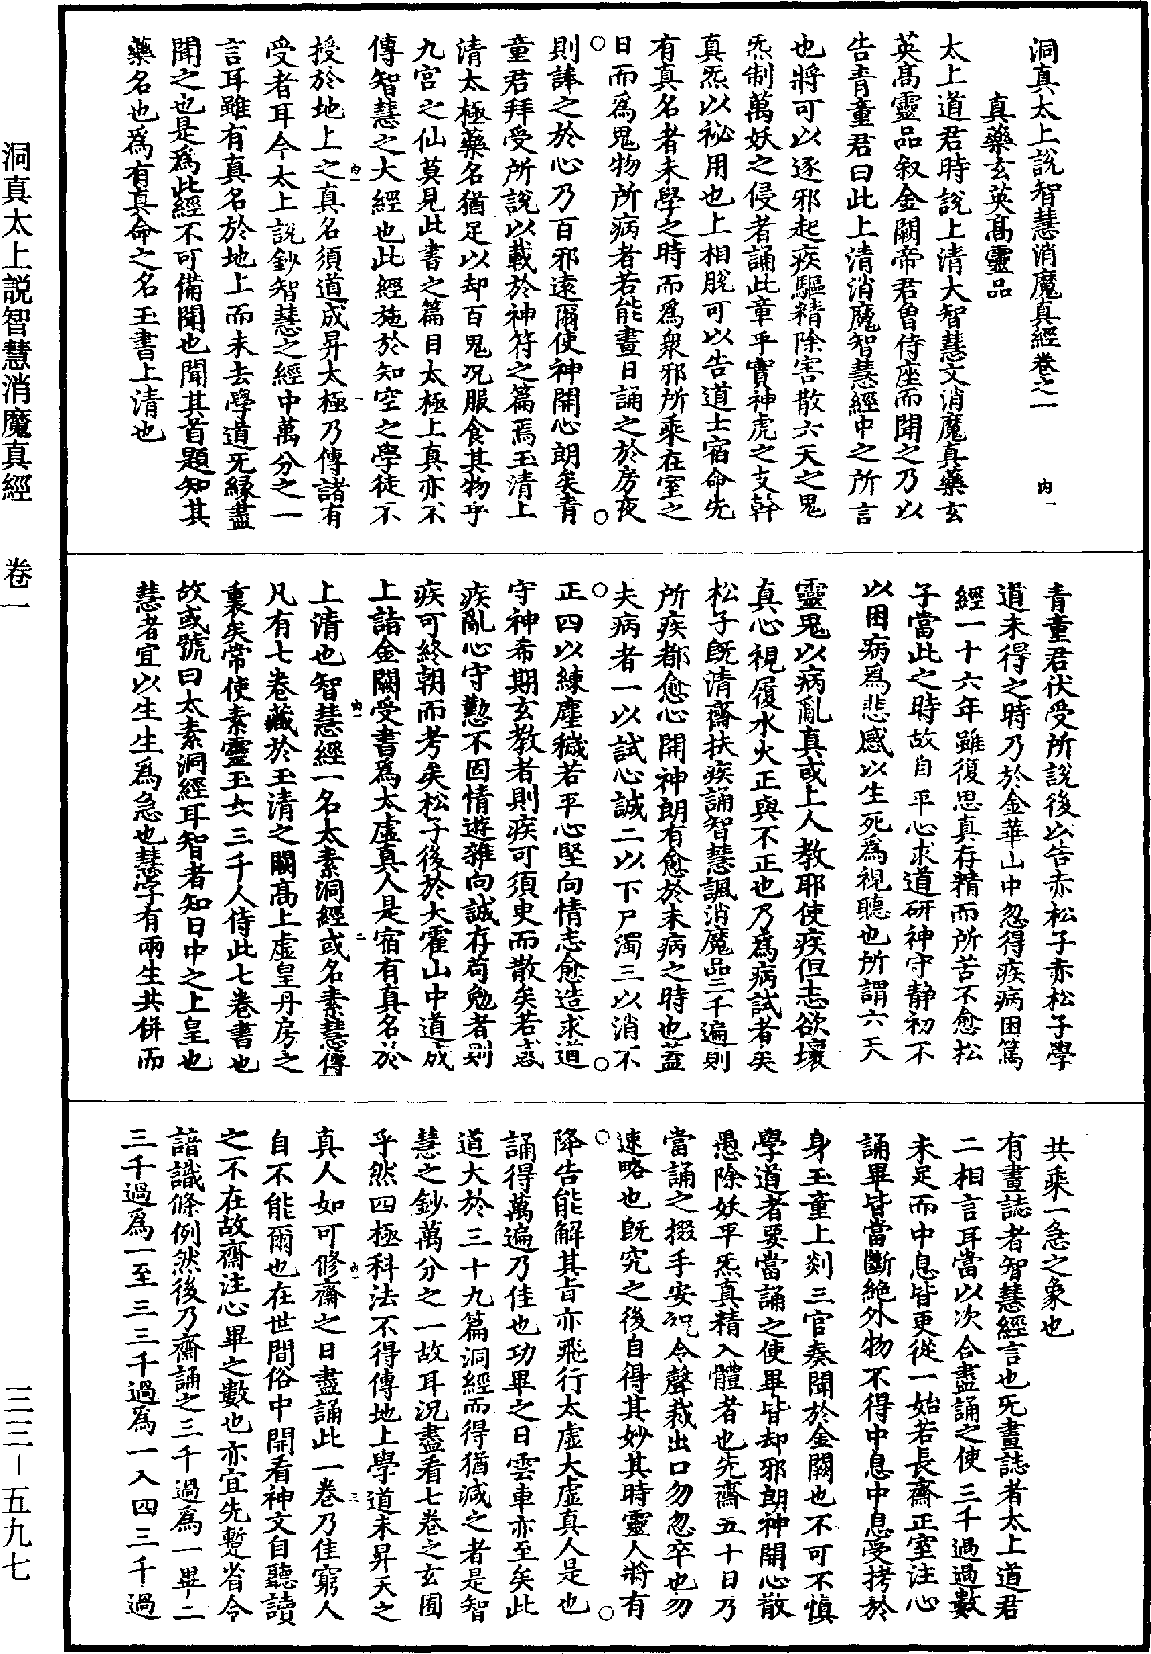 洞真太上說智慧消魔真經卷之一 內一
真藥玄英高靈品
太上道君時說上清大智慧文消魔真藥玄
英高靈品叙金闕帝君曽侍座而聞之乃以
告青童君曰此上清消魔智慧經中之所言
也將可以逐邪起疾驅精除害散六天之鬼
炁制萬妖之侵者誦此章乎實神虎之支幹
真炁以祕用也上相脫可以告道士宿命先
有真名者未學之時而爲衆邪所乘在室之
日而爲鬼物所病者若能晝日誦之於房夜
則誦之於心乃百邪遠爾使神開心朗矣青
童君拜受所說以載於神符之篇焉玉清上
清太極藥名猶足以却百鬼况服食其物乎
九宮之仙莫見此書之篇目太極上真亦不
傳智慧之大經也此經施於知空之學徒不
授於地上之真名須道成昇太極乃傳諸有
受者耳今太上說鈔智慧之經中萬分之一
言耳雖有真名於地上而未去學道旡緣盡
聞之也是爲此經不可備聞也聞其首題知其
藥名也爲有真命之名玉書上清也
青童君伏受所說後以告赤松子赤松子學
道未得之時乃於金華山中忽得疾病困篤
經一十六年雖復思真存精而所苦不愈松
子當此之時故自平心求道研神守静初不
以困病爲悲感以生死爲視聽也所謂六天
靈鬼以病亂真或上人教耶使疾但志欲壞
真心視履水火正與不正也乃爲病試者矣
松子旣清齋扶疾誦智慧諷消魔品三千遍則
所疾都愈心開神朗有愈於未病之時也蓋
夫病者一以試心誠二以下尸濁三以消不
正四以練塵穢若平心堅向情志愈造求道
守神希期玄教者則疾可須㬰而散矣若惑
疾亂心守懃不固情遊雜向誠存苟勉者則
疾可終朝而考矣松子後於大霍山中道成
上詣金闕受書爲太虛真人是宿有真名於
上清也智慧經一名太素洞經或名素慧傳
凡有七卷藏於玉清之闕高上虛皇丹房之
裏矣常使素靈玉女三千人侍此七卷書也
故或號曰太素洞經耳智者知日中之上皇也
慧者宜以生生爲急也慧字有兩生共併而
共乘一急之象也
有晝誌者智慧經言也旡晝誌者太上道君
二相言耳當以次合盡誦之使三千過過數
未足而中息皆更從一始若長齋正室注心
誦畢皆當斷絕外物不得中息中息受拷於
身玉童上剡三官奏聞於金闕也不可不慎
學道者要當誦之使畢皆却邪朗神開心散
愚除妖平炁真精入體者也先齋五十日乃
當誦之掇手安祝令聲裁出口勿忽卒也勿
速略也旣究之後自得其妙其時靈人將有
降告能解其旨亦飛行太虛大虛真人是也
誦得萬遍乃佳也功畢之日雲車亦至矣此
道大於三十九篇洞經而得猶減之者是智
慧之鈔萬分之一故耳況盡看七卷之玄囿
乎然四極科法不得傳地上學道未昇天之
真人如可修齋之日盡誦此一卷乃佳窮人
自不能爾也在世間俗中開看神文自聽讀
之不在故齋注心畢之數也亦宜先蹔省令
諳識條例然後乃齋誦之三千過爲一畢二
三千過爲一至三三千過爲一入四三千過
洞真太上説智慧消魔真經 卷一
三三－五九七